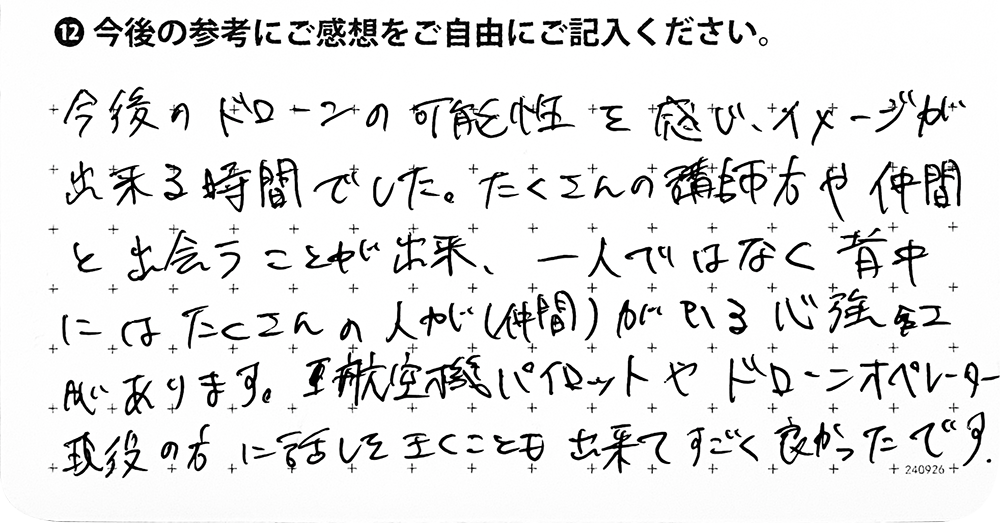 ⓬ 今後の参考にご感想をご自由にご記入ください。
今後のドローンの可能性を感び、イメージが
出来る時間でした。たくさんの講師方や仲間
と出会うことが出来、一人ではなく背中
にはたくさんの人が(仲間)がいる心強
があります。航空機パイロットや ドローンオペレーター
現役の方に話しをきくことも出来てすごく良かったです.
240926